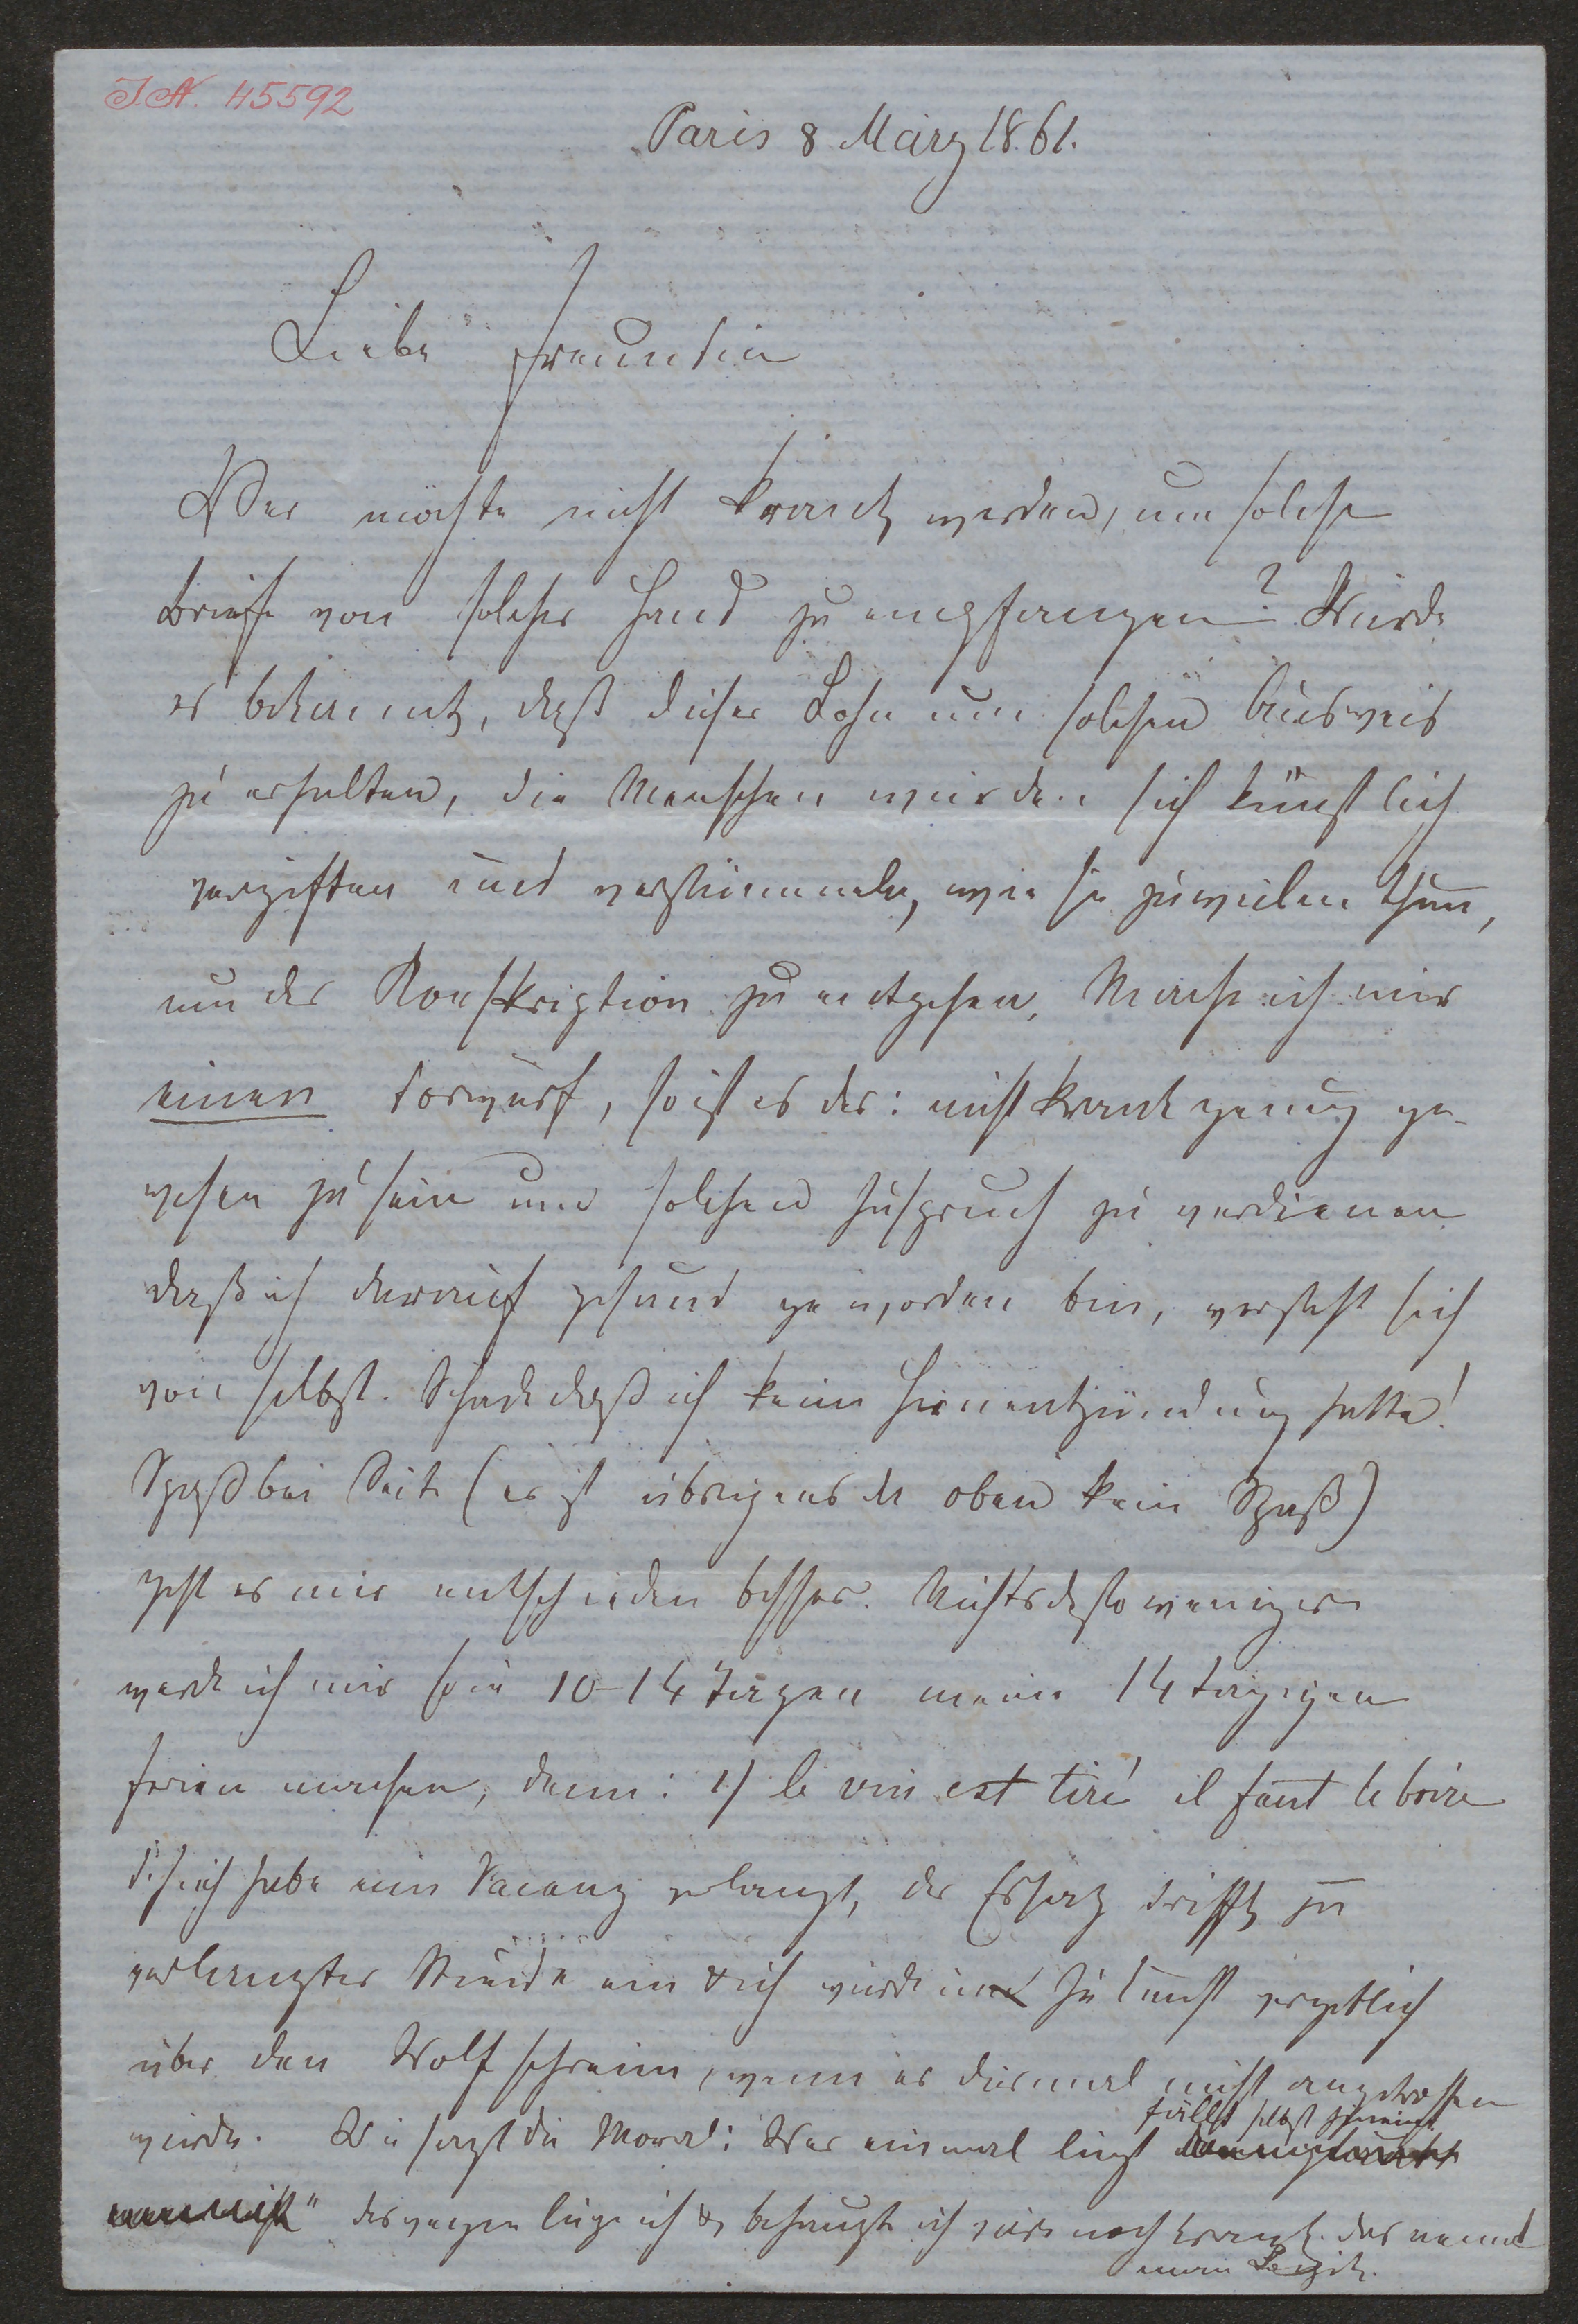 I.N. 45592
Paris 8 März 1861.
Liebe Freundin
Wer möchte nicht krank werden, um solche
Briefe von solcher Hand zu empfangen? Würde
es bekannt, daß dieser Lohn um solchen Ausweis
zu erhalten, die Menschen würden sich künstlich
vergiften und verstümmeln, wie sie zuweilen thun,
um der Konskription zu entgehen. Mache ich mir
einen Vorwurf, so ist es der: nicht krank genug ge-
wesen zu sein um solchen Zuspruch zu verdienen
daß ich darauf gesund geworden bin, versteht sich
von selbst. Schade daß ich keine Hirnentzündung hatte!
Spaß bei Seite (es ist übrigens da oben kein Spaß)
geht es mir entschieden besser. Nichtsdestoweniger
werde ich mir in 10-14 Tagen meine 14 tägigen
Ferien machen, denn: 1) le vin est tiré il faut le boire
d. h. ich habe eine Vacanz verlangt, der Ersatz trifft zu
verlangter Stunde ein & ich würde in Zukunft vergeblich
über den Wolf schreien, wenn er diesmal nicht angetroffen
würde. Wie sagt die Moral: Wer einmal lügt
fällt selbst hinein
" deswegen lüge ich & behaupte ich wäre noch krank. Das nennt
man Logik.